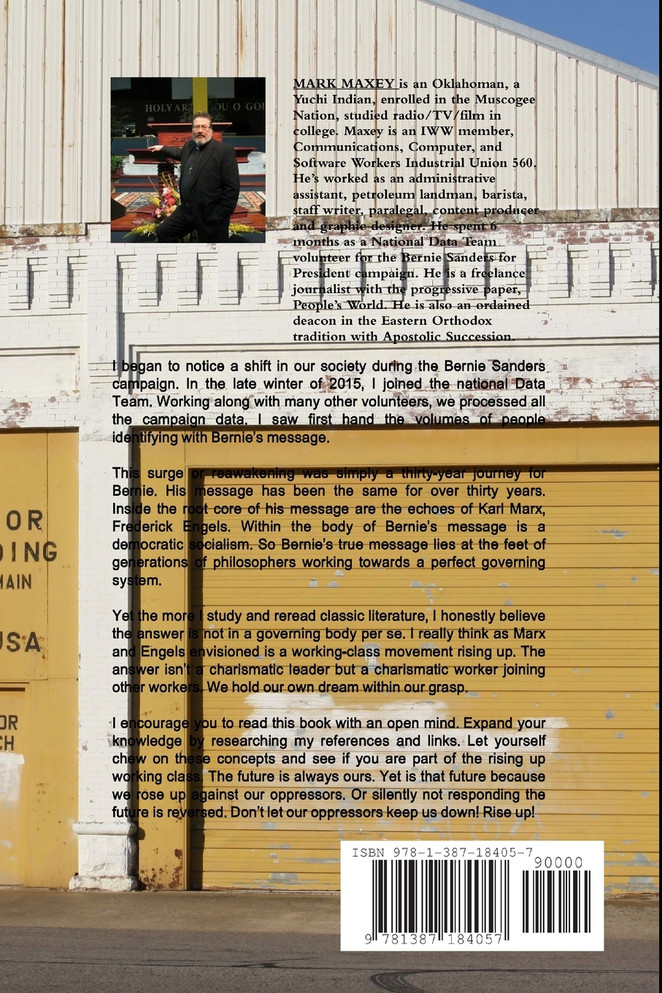 HOLY AR
OU O GO
MARK MAXEY is an Oklahoman, a
Yuchi Indian, enrolled in the Muscogee
Nation, studied radio/TV/film in
college. Maxey is an IWW member,
Communications, Computer, and
Software Workers Industrial Union 560.
He's worked as an administrative
assistant, petroleum landman, barista,
staff writer, paralegal, content producer
and graphic designer. He spent 6
months as a National Data Team
volunteer for the Bernie Sanders for
President campaign. He is a freelance
journalist with the progressive paper,
People's World. He is also an ordained
deacon in the Eastern Orthodox
tradition with Apostolic Succession.
I began to notice a shift in our society during the Bernie Sanders
campaign. In the late winter of 2015, I joined the national Data
Team. Working along with many other volunteers, we processed all
the campaign data. I saw first hand the volumes of people
identifying with Bernie's message.
This surge or reawakening was simply a thirty-year journey for
Bernie. His message has been the same for over thirty years.
Inside the root core of his message are the echoes of Karl Marx,
Frederick Engels. Within the body of Bernie's message is a
democratic socialism. So Bernie's true message lies at the feet of
generations of philosophers working towards a perfect governing
system.
Yet the more I study and reread classic literature, I honestly believe
the answer is not in a governing body per se. I really think as Marx
and Engels envisioned is a working-class movement rising up. The
answer isn't a charismatic leader but a charismatic worker joining
other workers. We hold our own dream within our grasp.
I encourage you to read this book with an open mind. Expand your
knowledge by researching my references and links. Let yourself
chew on these concepts and see if you are part of the rising up
working class. The future is always ours. Yet is that future because
we rose up against our oppressors. Or silently not responding the
future is reversed. Don't let our oppressors keep us down! Rise up!
OR
DING
MAIN
USA
OR
CH
ISBN 978-1-387-18405-7
90000
9 781387 184057